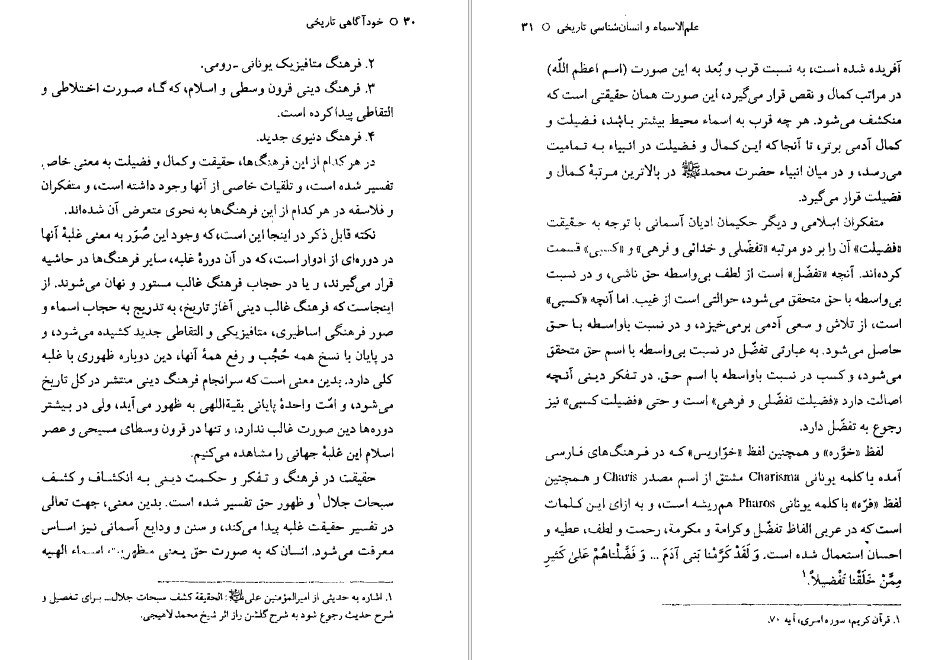 ۳۰ ○ خودآگاهی تاریخی
۲. فرهنگ متافیزیک یونانی ـ رومی.
۳. فرهنگ دینی قرون وسطی و اسلام، که گاه صورت اختلاطی و
التقاطی پیدا کرده است.
۴. فرهنگ دنیوی جدید.
در هر کدام از این فرهنگ‌ها، حقیقت و کمال و فضیلت به معنی خاص
تفسیر شده است، و تلقیات خاصی از آنها وجود داشته است، و متفکران
و فلاسفه در هر کدام از این فرهنگ‌ها به نحوی متعرض آن شده‌اند.
نکته قابل ذکر در اینجا این است، که وجود این صُوَر به معنی غلبهٔ آنها
در دوره‌ای از ادوار است، که در آن دورهٔ غلبه، سایر فرهنگ‌ها در حاشیه
قرار می‌گیرند، و یا در حجاب فرهنگ غالب مستور و نهان می‌شوند. از
اینجاست که فرهنگ غالب دینی آغاز تاریخ، به تدریج به حجاب اسماء و
صور فرهنگی اساطیری، متافیزیکی و التقاطی جدید کشیده می‌شود، و
در پایان با نسخ همه حُجُب و رفع همهٔ آنها، دین دوباره ظهوری با غلبه
کلی دارد. بدین معنی است که سرانجام فرهنگ دینی منتشر در کل تاریخ
می‌شود، و امّت واحدهٔ پایانی بقیةاللهی به ظهور می‌آید، ولی در بیشتر
دوره‌ها دین صورت غالب ندارد؛ و تنها در قرون وسطای مسیحی و عصر
اسلام این غلبهٔ جهانی را مشاهده می‌کنیم.
حقیقت در فرهنگ و تفکر و حکمت دینی به انکشاف و کشف
سبحات جلال۱ و ظهور حق تفسیر شده است. بدین معنی، جهت تعالی
در تفسیر حقیقت غلبه پیدا می‌کند، و سنن و ودایع آسمانی نیز اساس
معرفت می‌شود. انسان که به صورت حق یعنی مظهریت اسماء الهیه
۱. اشاره به حدیثی از امیرالمؤمنین علی: الحقیقة کشف سبحات جلال... برای تفصیل و
شرح حدیث رجوع شود به شرح گلشن راز اثر شیخ محمد لاهیجی.
علم‌الاسماء و انسان‌شناسی تاریخی ○ ۳۱
آفریده شده است، به نسبت قرب و بُعد به این صورت (اسم اعظم اللّه)
در مراتب کمال و نقص قرار می‌گیرد، این صورت همان حقیقتی است که
منکشف می‌شود. هر چه قرب به اسماء محیط بیشتر باشد، فضیلت و
کمال آدمی برتر، تا آنجا که این کمال و فضیلت در انبیاء به تمامیت
می‌رسد، و در میان انبیاء حضرت محمدﷺ در بالاترین مرتبهٔ کمال و
فضیلت قرار می‌گیرد.
متفکران اسلامی و دیگر حکیمان ادیان آسمانی با توجه به حقیقت
«فضیلت» آن را بر دو مرتبه «تفضّلی و خدائی و فرهی» و «کسبی» قسمت
کرده‌اند. آنچه «تفضّل» است از لطف بی‌واسطه حق ناشی، و در نسبت
بی‌واسطه با حق متحقق می‌شود، حوالتی است از غیب. اما آنچه «کسبی»
است، از تلاش و سعی آدمی برمی‌خیزد، و در نسبت باواسطه با حق
حاصل می‌شود. به عبارتی تفضّل در نسبت بی‌واسطه با اسم حق متحقق
می‌شود، و کسب در نسبت باواسطه با اسم حق. در تفکر دینی آنچه
اصالت دارد «فضیلت تفضّلی و فرهی» است و حتی «فضیلت کسبی» نیز
رجوع به تفضّل دارد.
لفظ «خوَّره» و همچنین لفظ «خوّاریس» که در فرهنگ‌های فارسی
آمده با کلمه یونانی Charisma مشتق از اسم مصدر Charis و همچنین
لفظ «فرّه» با کلمه یونانی Pharos هم‌ریشه است، و به ازای این کلمات
است که در عربی الفاظ تفضّل و کرامة و مکرمة، رحمت و لطف، عطیه و
احسان استعمال شده است. وَ لَقَدْ کَرَّمْنا بَنی آدَمَ ... وَ فَضَّلْناهُمْ عَلیٰ کَثیرٍ
مِمَّنْ خَلَقْنا تَفْضیلاً.۱
۱. قرآن کریم، سوره اسری، آیه ۷۰.